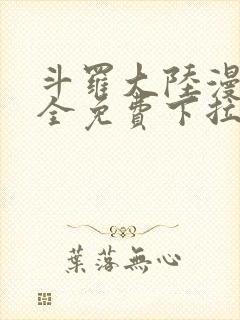 斗羅大陸漫
全免費下拉
葉落無心